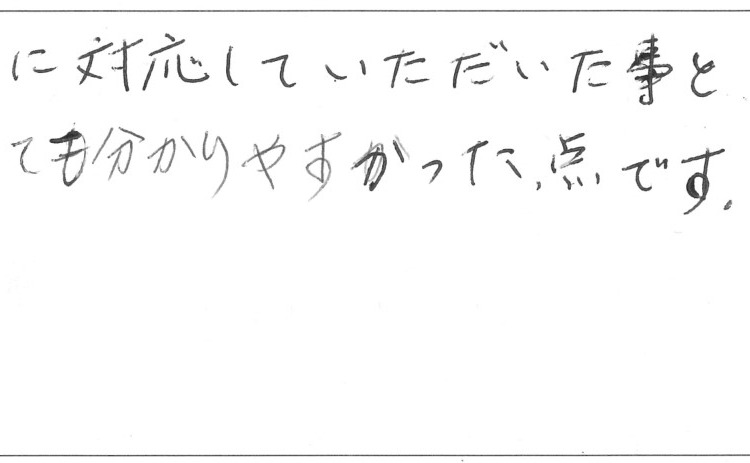 に対応していただいた事と
ても分かりやすかった、点です。